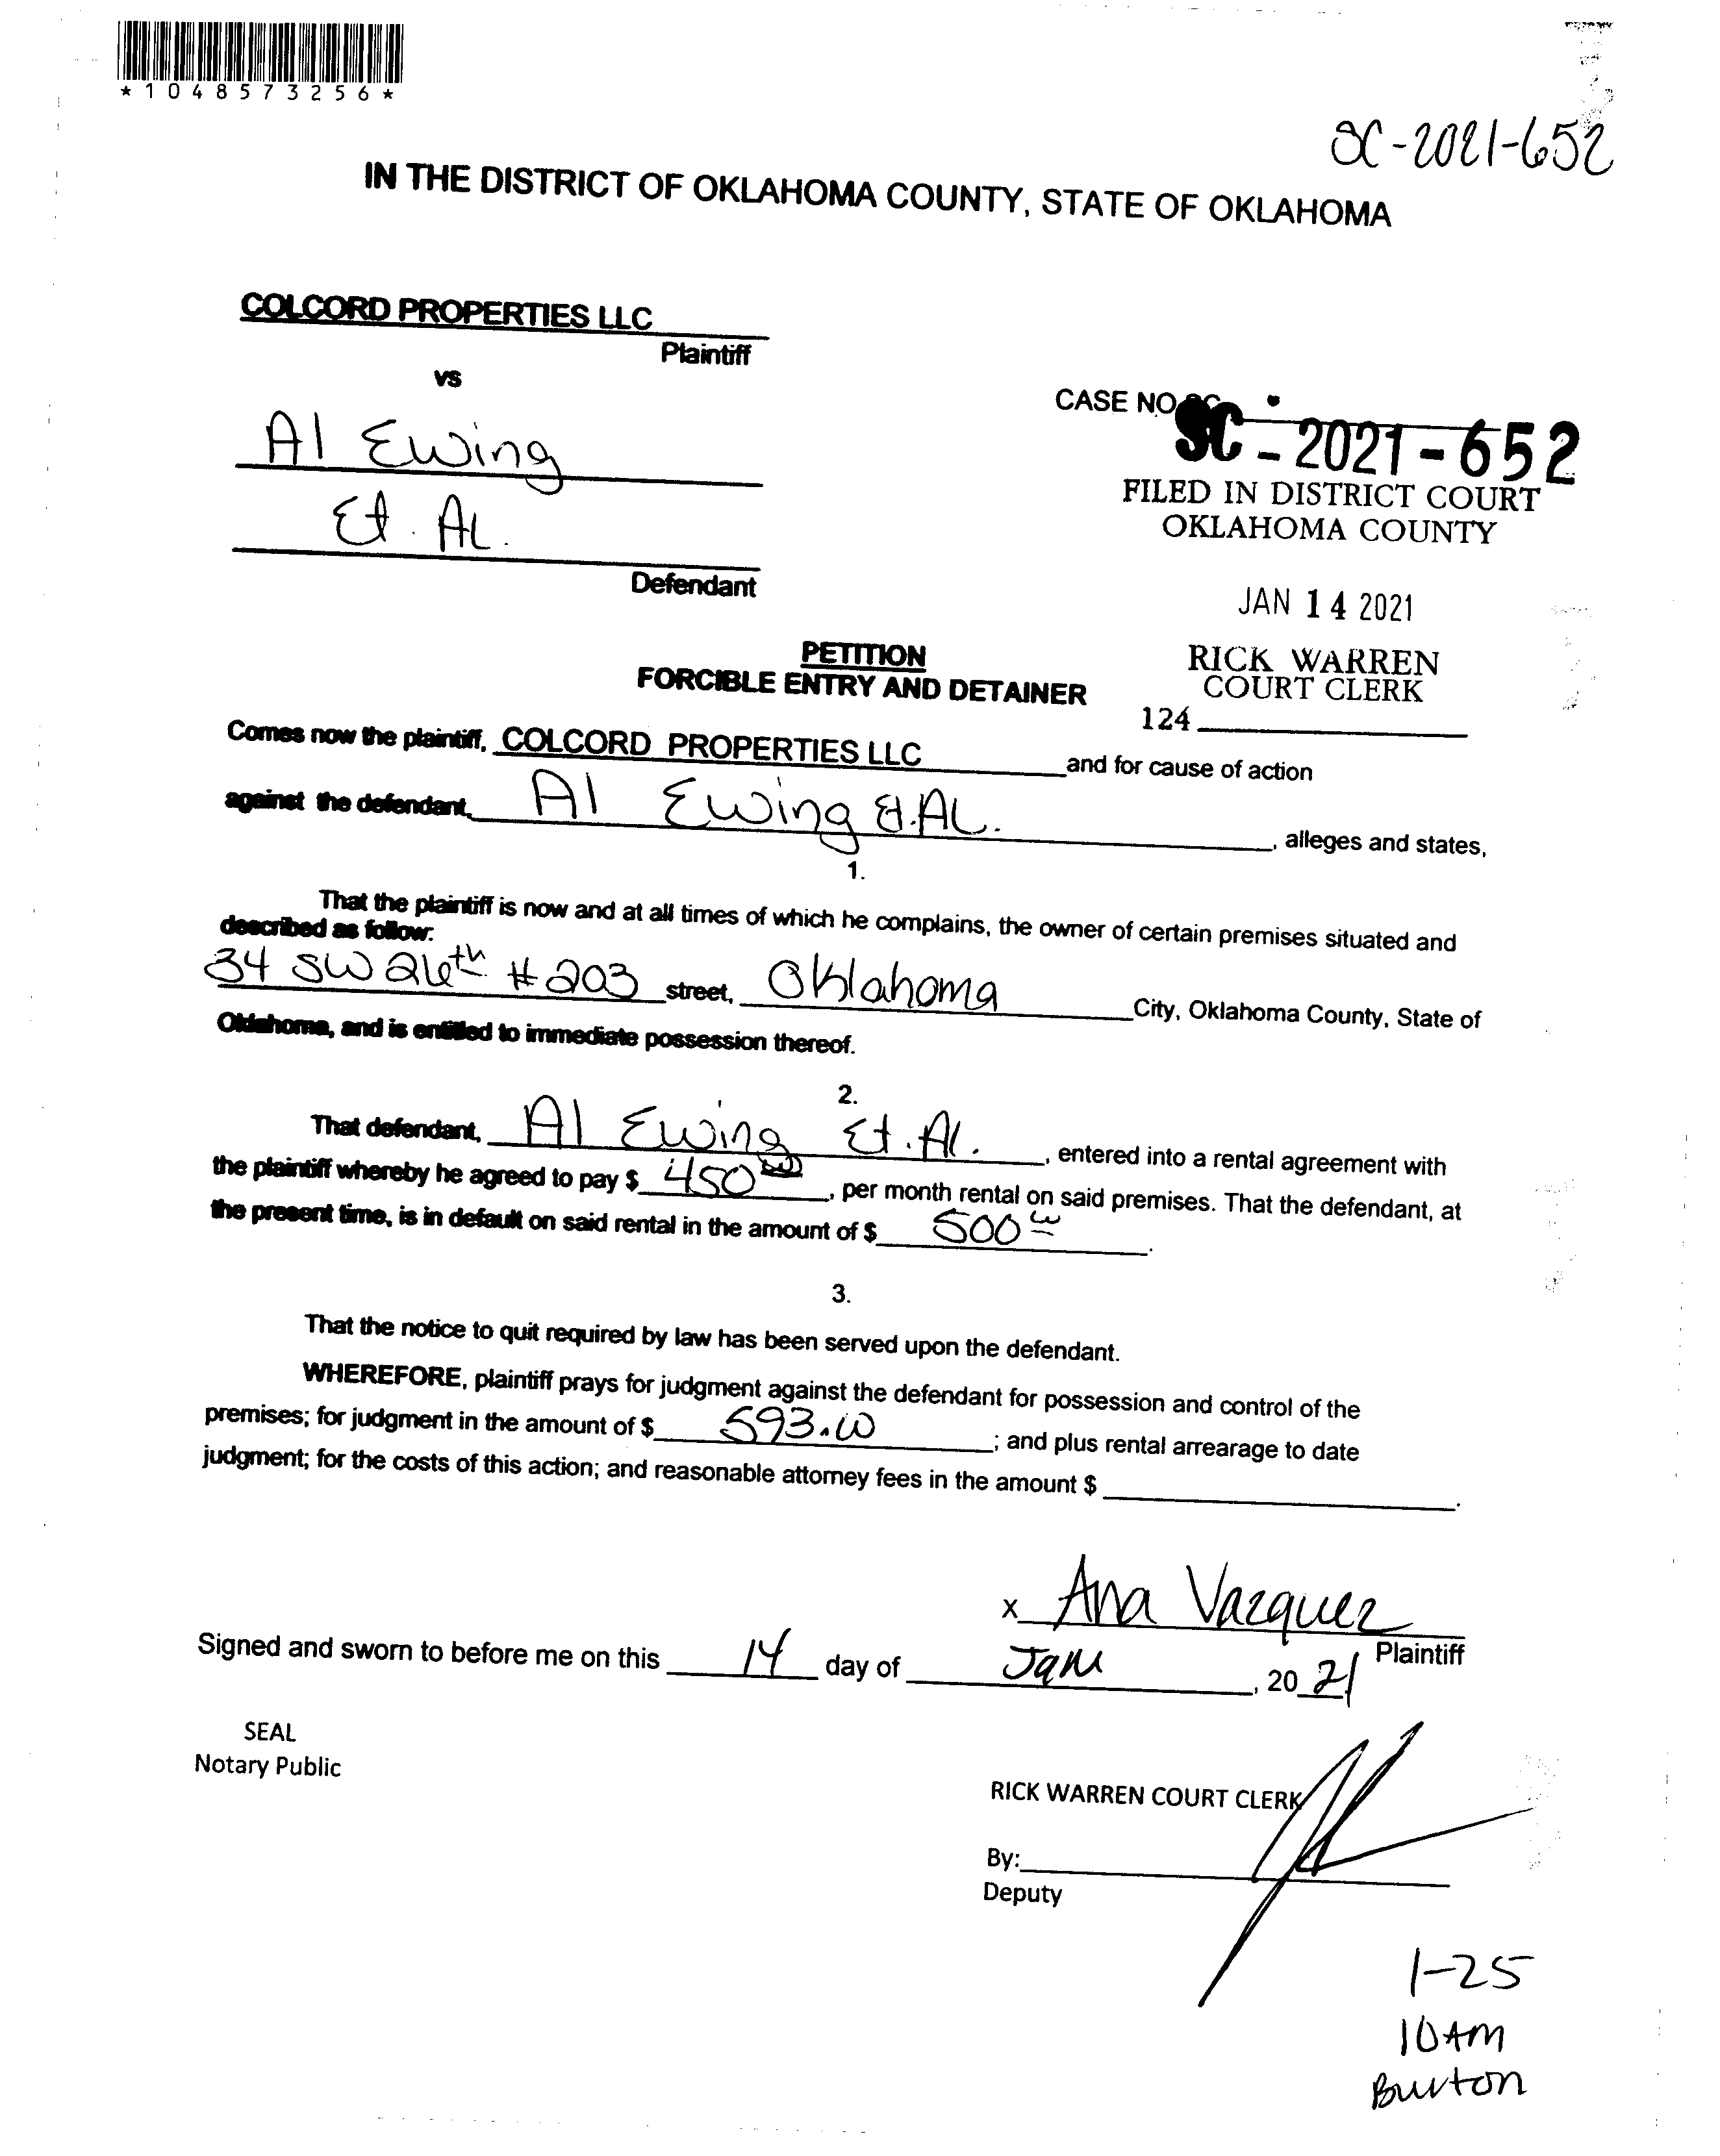 *1048573256*
SC-2021-652
IN THE DISTRICT OF OKLAHOMA COUNTY, STATE OF OKLAHOMA
COLCORD PROPERTIES LLC
Plaintiff
vs
Al Ewing
Et. Al.
Defendant
CASE NO.
SC-2021-652
FILED IN DISTRICT COURT
OKLAHOMA COUNTY
JAN 14 2021
RICK WARREN
COURT CLERK
124
PETITION
FORCIBLE ENTRY AND DETAINER
Comes now the plaintiff, COLCORD PROPERTIES LLC and for cause of action
against the defendant, Al Ewing Et. AL. , alleges and states,
1.
That the plaintiff is now and at all times of which he complains, the owner of certain premises situated and
described as follow:
34 SW 26th #203 street, Oklahoma City, Oklahoma County, State of
Oklahoma, and is entitled to immediate possession thereof.
2.
That defendant, Al Ewing Et. Al. , entered into a rental agreement with
the plaintiff whereby he agreed to pay $ 450 00 , per month rental on said premises. That the defendant, at
the present time, is in default on said rental in the amount of $ 500 00 .
3.
That the notice to quit required by law has been served upon the defendant.
WHEREFORE, plaintiff prays for judgment against the defendant for possession and control of the
premises; for judgment in the amount of $ 593.00 ; and plus rental arrearage to date
judgment; for the costs of this action; and reasonable attorney fees in the amount $ .
x Ana Vazquez
Plaintiff
Signed and sworn to before me on this 14 day of Jan , 20 21
SEAL
Notary Public
RICK WARREN COURT CLERK
By:
Deputy
1-25
10AM
Burton